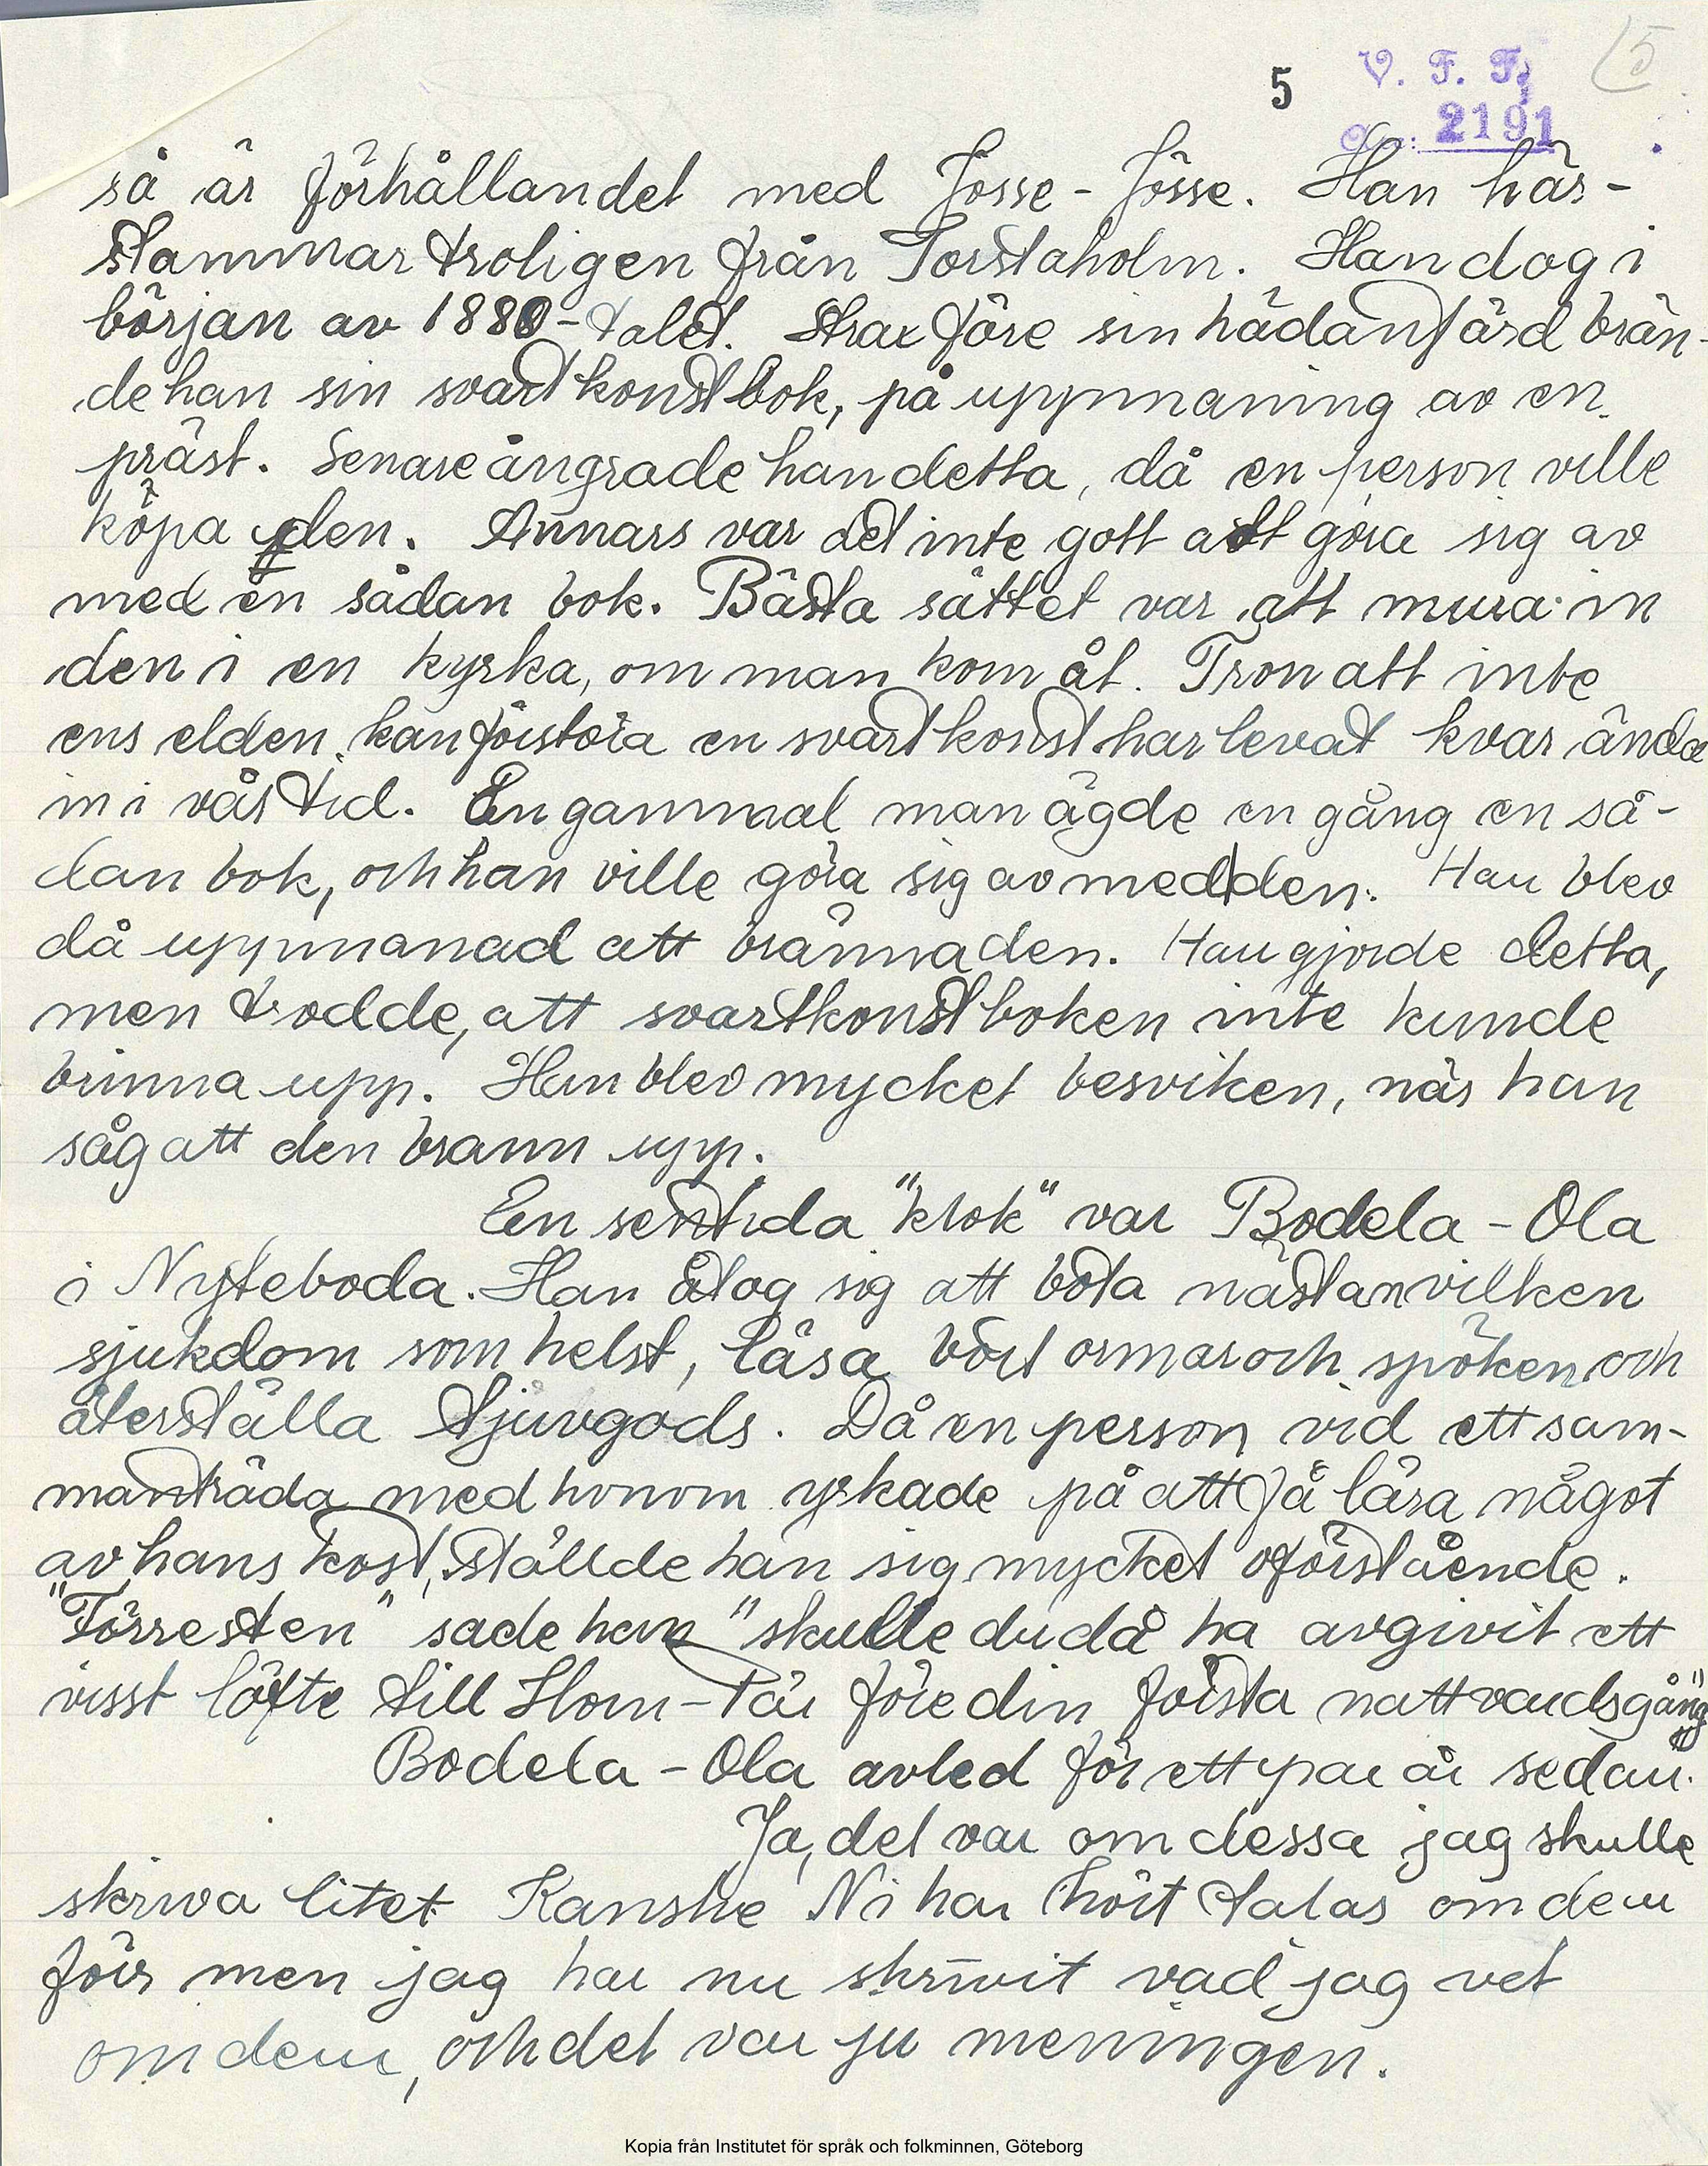 5 V. F. F. 5
2191
så är förhållandet med Jösse-Jösse. Han här-
stammar troligen från Torstaholm. Han dog i
början av 1880-talet. Strax före sin hädanfärd brän-
de han sin svartkonstbok, på uppmaning av en
präst. Senare ångrade han detta, då en person ville
köpa den. Annars var det inte gott att göra sig av
med en sådan bok. Bästa sättet var att mura in
den i en kyrka, om man kom åt. Tron att inte
ens elden kan förstöra en svartkonst har levat kvar ända
in i vår tid. En gammal man ägde en gång en så-
dan bok, och han ville göra sig av med den. Han blev
då uppmanad att bränna den. Han gjorde detta,
men trodde, att svartkonstboken inte kunde
brinna upp. Han blev mycket besviken, när han
såg att den brann upp.
En sentida "klok" var Bodela-Ola
i Nyteboda. Han åtog sig att bota nästan vilken
sjukdom som helst, läsa bort ormar och spöken och
återställa tjuvgods. Då en person vid ett sam-
manträda med honom yrkade på att få lära något
av hans kost, ställde han sig mycket oförstående.
"Förresten" sade han "skulle du då ha avgivit ett
visst löfte till Horn-Pär före din första nattvardsgång"
Bodela-Ola avled för ett par år sedan.
Ja, det var om dessa jag skulle
skriva litet Kanske Ni har hört talas om dem
förr men jag har nu skrivit vad jag vet
om dem, och det var ju meningen.
Kopia från Institutet för språk och folkminnen, Göteborg